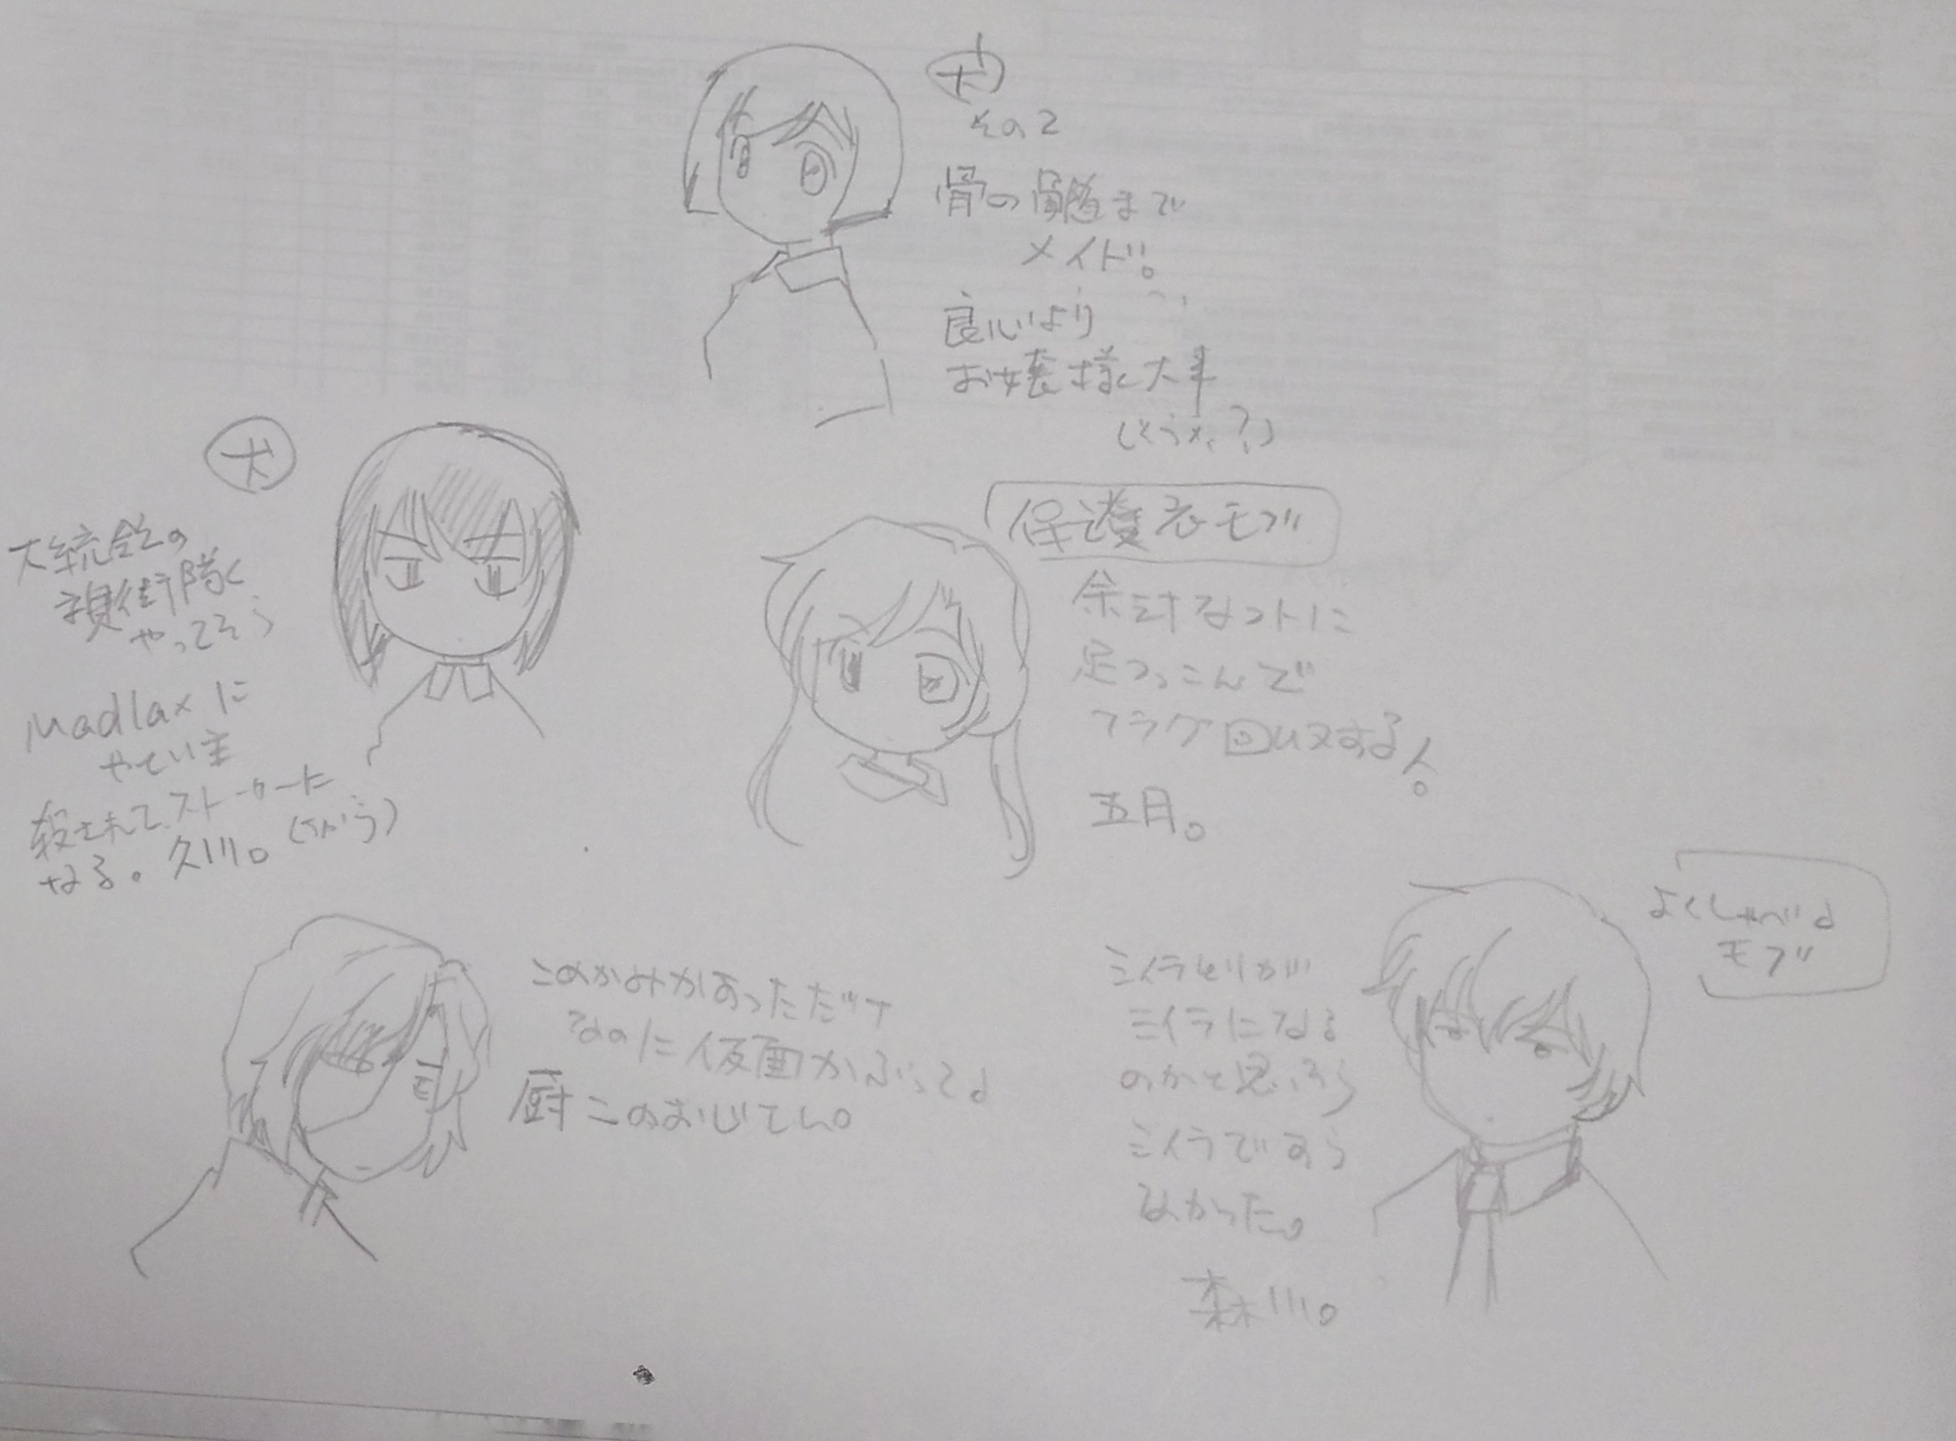 犬
その2
骨の髄まで
メイド。
良心より
お嬢様大事
犬
大統領の
親衛隊
やってそう
Madlaxに
やとい主
殺されてストーカーに
なる。久川。(ちがう)
保護者モブ
余計なコトに
足つっこんで
フラグ回収する人。
五月。
このかみがあっただけ
なのに仮面かぶってる
厨二のおじさん。
よくしゃべる
モブ
ミイラとりが
ミイラになる
のかと思いきや
ミイラですら
なかった。
森川。